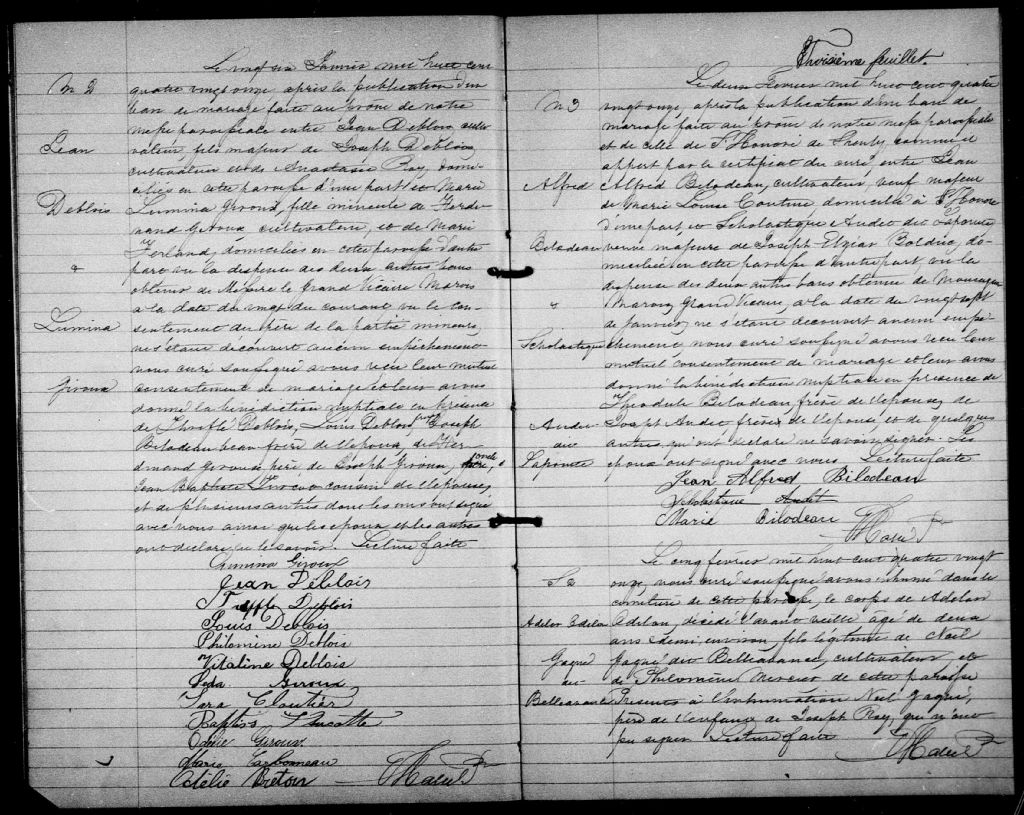 M 2
Jean
Deblois
&
Lumina
Giroux
Le vingt six Janvier mil huit cent
quatre vingt onze après la publication d'un
ban de mariage faite au prône de notre
messe paroissiale entre Jean Deblois culti-
vateur fils majeur de Joseph Deblois,
cultivateur et de Anastasie Roy, domi-
ciliés en cette paroisse d'une part et Marie
Lumina Giroux, fille mineure de Ferdi-
nand Giroux cultivateur, et de Marie
Ferland, domiciliés en cette paroisse d'autre
part vu la dispense des deux autres bans
obtenue de Messire le Grand Vicaire Marois
a la date du vingt du courant vu le con-
sentement du père de la partie mineure,
ne s'étant découvert aucun empêchement
nous curé soussigné avons reçu leur mutuel
consentement de mariage et leur avons
donné la bénédiction nuptiale en présence
de Deblois, Louis Deblois, Joseph
Bilodeau beau frère de l'époux, de Fer-
dinand Giroux père de Joseph Giroux, oncle
Jean Baptiste cousin de l'épouse,
et de plusieurs autres dont les uns ont signé
avec nous ainsi que les époux et les autres
ont déclaré ne le savoir. Lecture faite
Lumina Giroux
Jean Déblois
Deblois
Louis Deblois
Philomine Deblois
Vitaline Deblois
Léda Giroux
Cloutier
Baptiste
Odélie Giroux
Maria Carbonneau
Adélie Bretour
Troisième feuillet.
M 3
Alfred
Bilodeau
&
Scholastique
Audet
dit
Lapointe
Le deux Février mil huit cent quatre
vingt onze, après la publication d'un ban de
mariage faite au prône de notre messe paroissiale
et de celle de St Honoré de Shenly comme il
appert par le certificat du curé, entre Jean
Alfred Bilodeau, cultivateur, veuf majeur
de Marie Louise Couture domicilié à St Honoré
d'une part, et Scholastique Audet dit Lapointe
veuve majeure de Joseph Elzéar Bolduc, do-
miciliée en cette paroisse d'autre part vu la
dispense des deux autres bans obtenue de Monseigneur
Marois, Grand Vicaire, a la date du vingt sept
de janvier, ne s'étant découvert aucun empê-
chement nous curé soussigné avons reçu leur
mutuel consentement de mariage et leur avons
donné la bénédiction nuptiale en présence de
Théodule Bilodeau, frère de l'époux, de
Joseph Audet frère de l'épouse, et de quelques
autres qui ont déclaré ne savoir signer. Les
époux ont signé avec nous Lecture faite
Jean Alfred Bilodeau
Scholastique Audet
Marie Bilodeau
S 2
Adelor Edelon
Gagné
dit
Bellavance
Le cinq février mil huit cent quatre vingt
onze, nous curé soussigné avons inhumé dans le
cimetière de cette paroisse, le corps de Adelor
Edelon, décédé l'avant veille âgé de deux
ans & demi environ, fils légitime de Noil
Gagné dit Bellavance, cultivateur et
de Philomène Mercier de cette paroisse
Présents à l'inhumation Noil Gagné,
père de l'enfant & Joseph Roy, qui n'ont
pu signer. Lecture faite